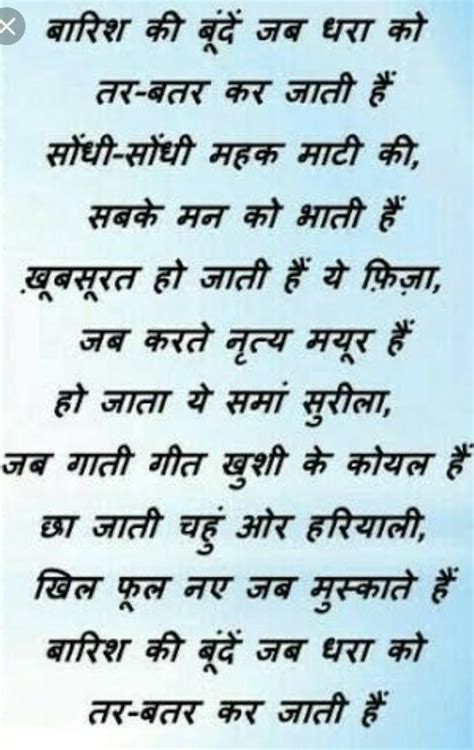 बारिश की बूंदें जब धरा को
तर-बतर कर जाती हैं
सोंधी-सोंधी महक माटी की,
सबके मन को भाती हैं
ख़ूबसूरत हो जाती हैं ये फ़िज़ा,
जब करते नृत्य मयूर हैं
हो जाता ये समां सुरीला,
जब गाती गीत खुशी के कोयल हैं
छा जाती चहुं ओर हरियाली,
खिल फूल नए जब मुस्काते हैं
बारिश की बूंदें जब धरा को
तर-बतर कर जाती हैं